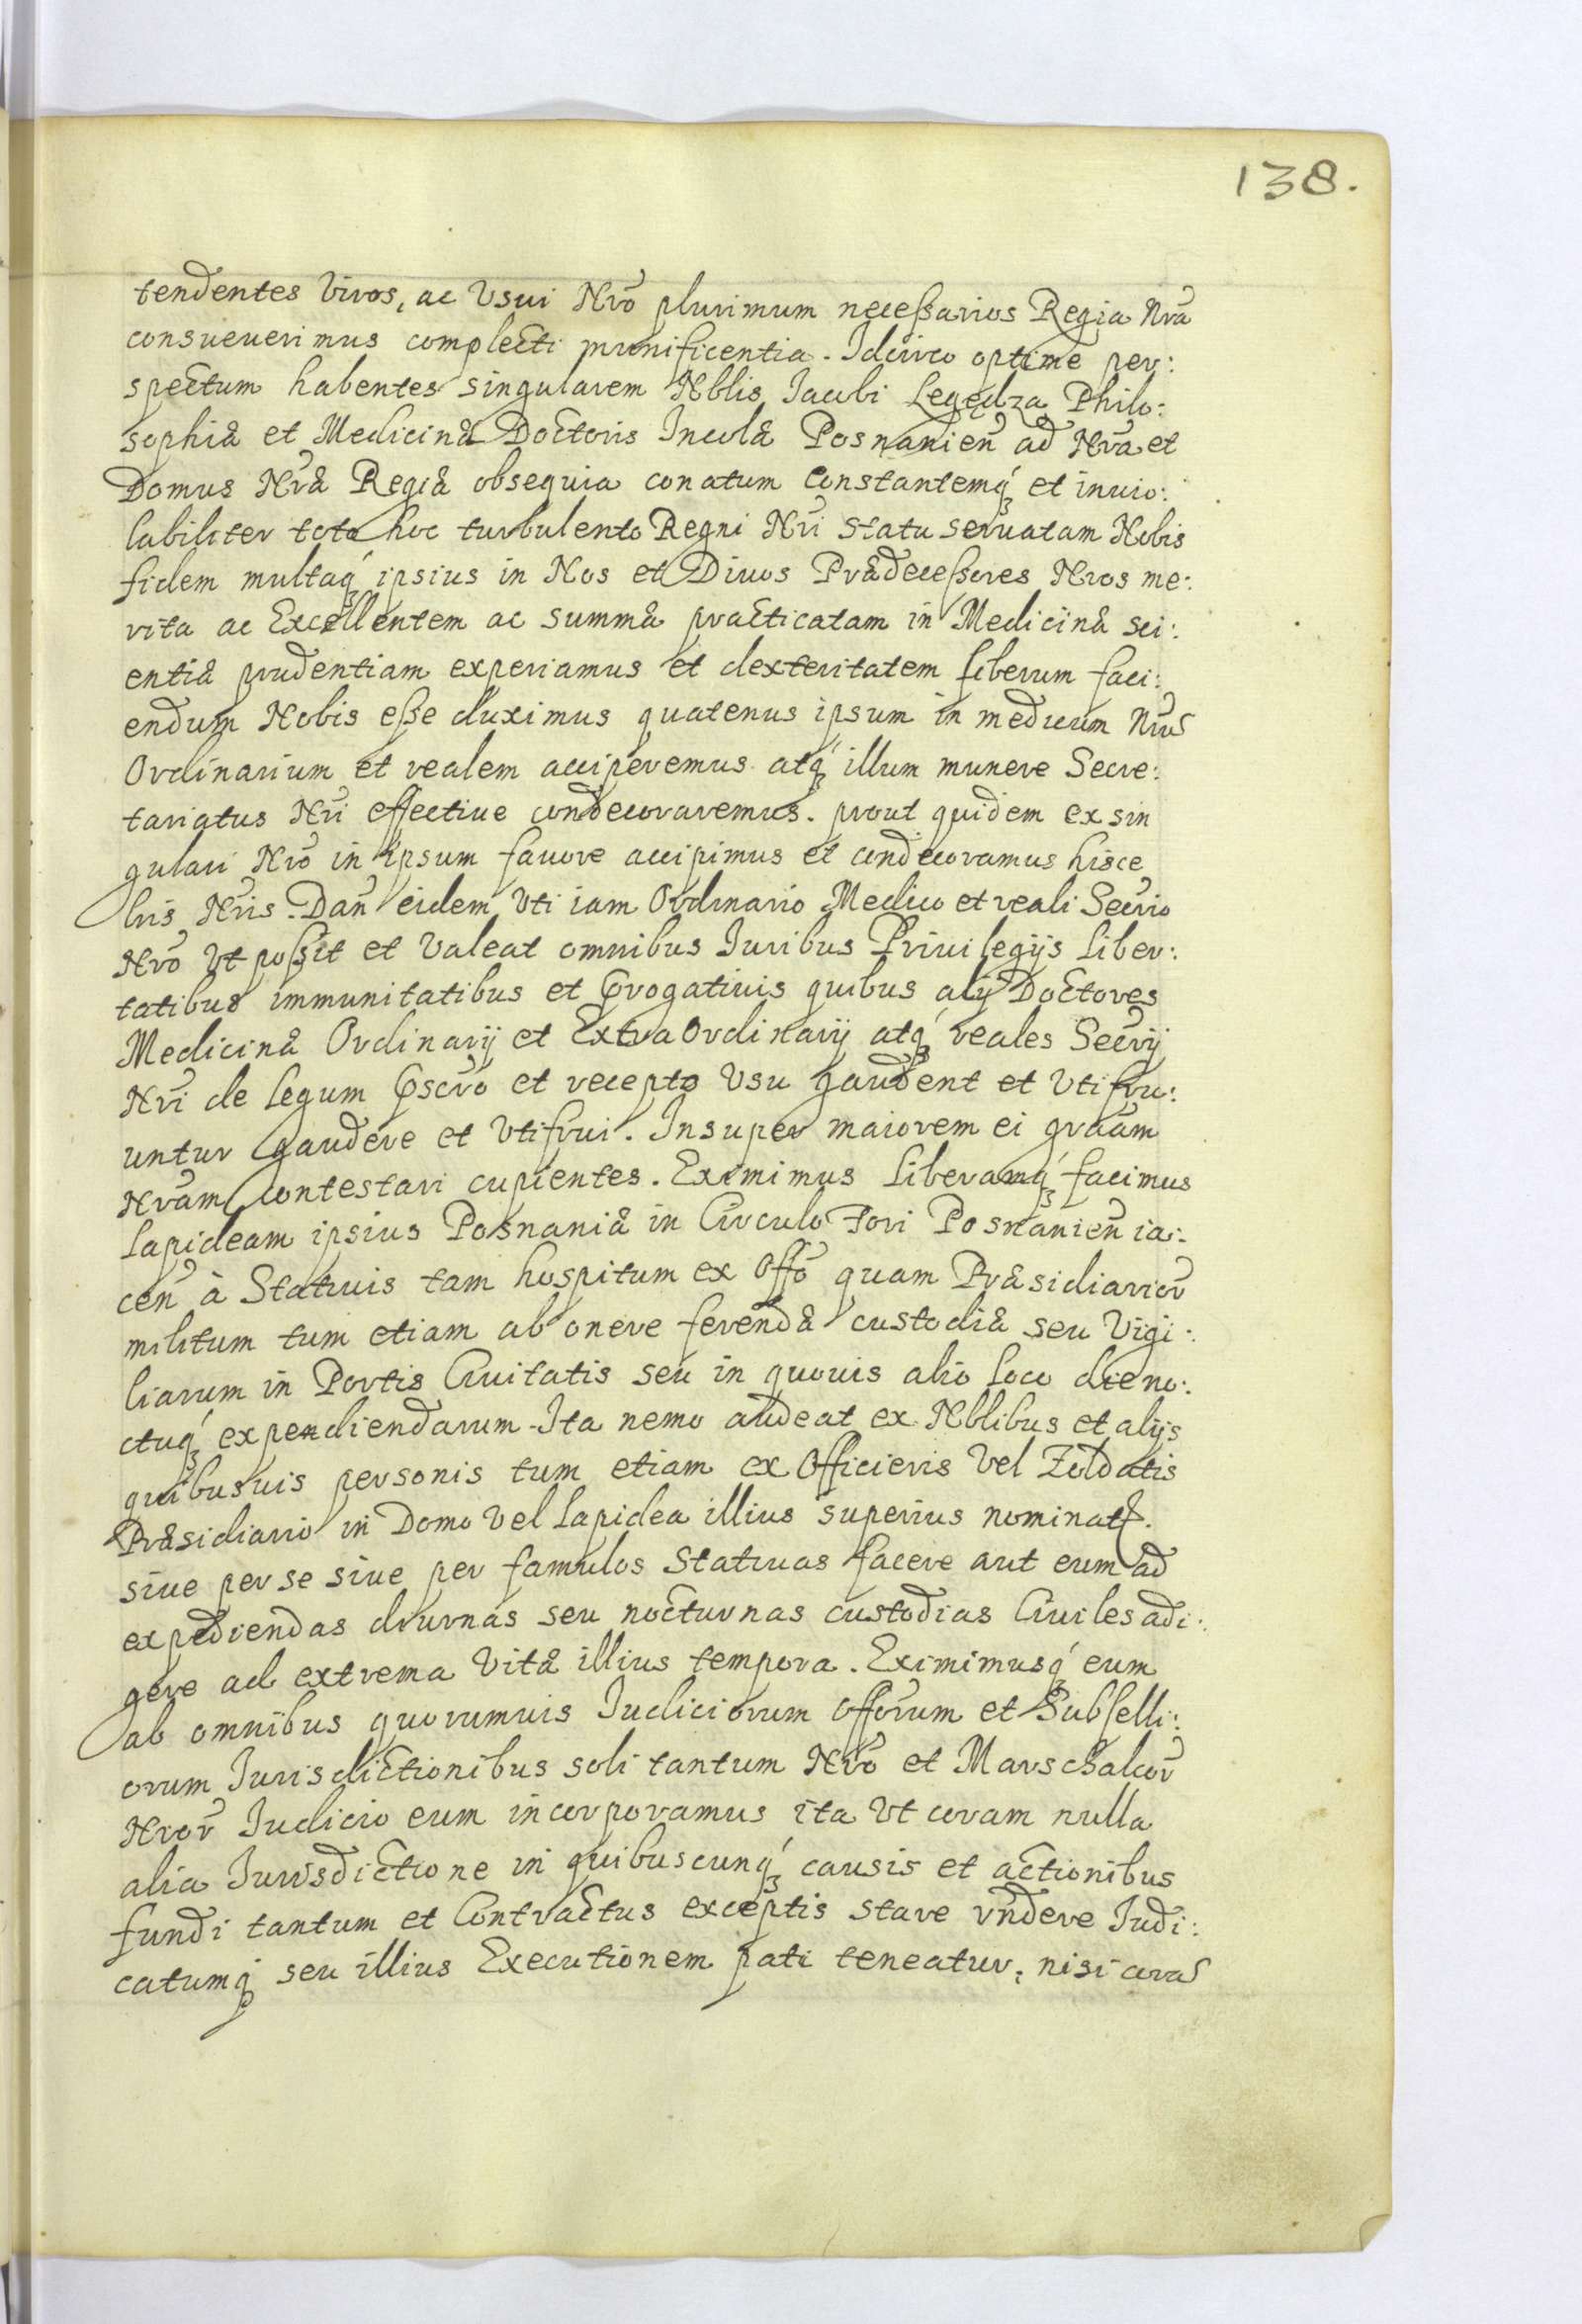 138.
tendentes Viros, ac Vsui Nrõ plurimum neceßarios Regia Nrã
consueuerimus complecti munificentia. Idcirco optime per:
spectum habentes singularem Nblis Iacobi Legędza Philo:
sophiæ et Medicinæ Doctoris Incolæ Posnanien̄ ad Nrã et
Domus Nræ̃ Regiæ obsequia conatum constantemq́ꝫ et inuio:
labiliter toto hoc turbulento Regni Nrĩ statu seruatam Nobis
fidem multaq́ꝫ ipsius in Nos et Diuos Prædeceßores Nros me:
rita ac Excellentem ac summa practicatam in Medicinæ sci:
entiâ prudentiam experiamus et dexteritatem liberum faci:
endum Nobis eße duximus quatenus ipsum in medicum Nrũ
Ordinarium et realem acciperemus atq́ꝫ illum munere Secre:
tariatus Nrĩ effectiue condecoraremus. prout quidem ex sin
gulari Nrõ in ipsum fauore accipimus et condecoramus hisce
lris Nrĩs. Dan̄ eidem Vti iam Ordinario Medico et reali Secrĩo
Nrõ Vt poßit et Valeat omnibus Iuribus Priuilegijs liber:
tatibus immunitatibus et Progatiuis quibus alij Doctores
Medicinæ Ordinarij et Extra Ordinarij atq́ꝫ reales Secrĩj
Nrĩ de legum Pscrõ et recepto Vsu gaudent et Vtifru:
untur gaudere et Vtifrui. Insuper maiorem ei grãam
Nrãm contestari cupientes. Eximimus liberamq́ꝫ facimus
lapideam ipsius Posnaniæ in Circulo Fori Posnanien̄ ia:
cen̄ à Statiuis tam hospitum ex Offõ quam Præsidiarior̃
militum tum etiam ab onere ferendæ custodiæ seu Vigi:
liarum in Portis Ciuitatis seu in quouis alio loco die no:
ctuq́ꝫ expendiendarum. Ita nemo audeat ex Nblibus et alijs
quibusuis personis tum etiam ex Officieris Vel Zoldatis
Præsidiario in Domo Vel lapidea illius superius nominata.
siue per se siue per famulos Statiuas facere aut eum ad
expediendas diurnas seu nocturnas custodias Ciuiles adi:
gere ad extrema Vitæ illius tempora. Eximimusq́ꝫ eum
ab omnibus quorumuis Iudiciorum Offõrum et Subselli:
orum Iurisdictionibus soli tantum Nrõ et Marschalcor̃
Nror̃ Iudicio eum incorporamus ita Vt coram nulla
alia Iurisdictione in quibuscunq́ꝫ causis et actionibus
fundi tantum et Contractus exceptis stare rñdere Iudi:
catumq́ꝫ seu illius Executionem pati teneatur, nisi corã